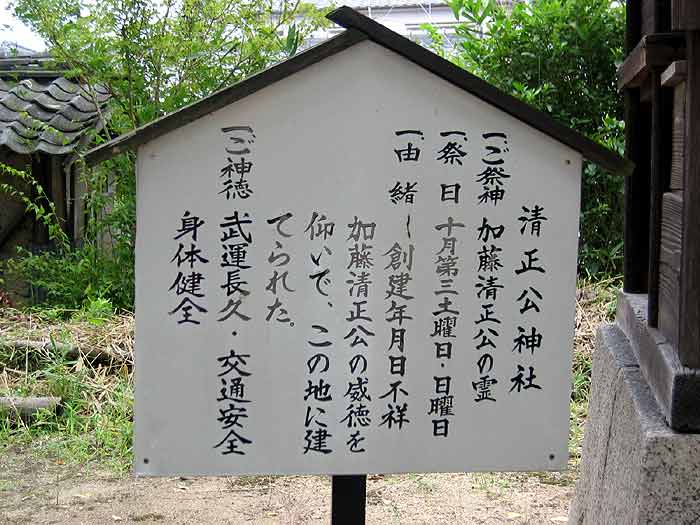 清正公神社
一、ご祭神 加藤清正公の霊
一、祭日 十月第三土曜日・日曜日
一、由緒 〜 創建年月日不祥
加藤清正公の威徳を
仰いで、この地に建
てられた。
一、ご神徳 武運長久・交通安全
身体健全